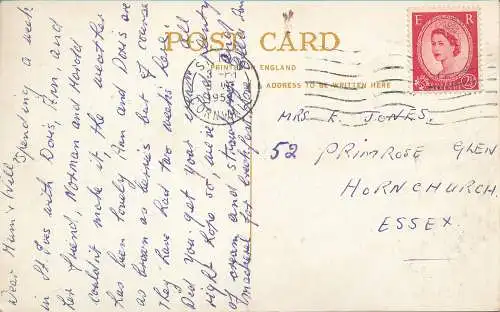 POST CARD
PRINTED IN ENGLAND
ADDRESS TO BE WRITTEN HERE
E R
2½
MRS. E. JONES.
52 PRIMROSE GLEN
HORNCHURCH.
ESSEX.
Dear Mum & Will
Spending a week
in St. Ives with Doris, Ann and
her friend, Norman and Harold
couldn't make it, the weather
has been lovely Ann and Doris are
as brown as berries but of course
They have had two weeks here
Did you get your
right hope so, we've had plenty
of cream and strawberries and
mackerel for breakfast